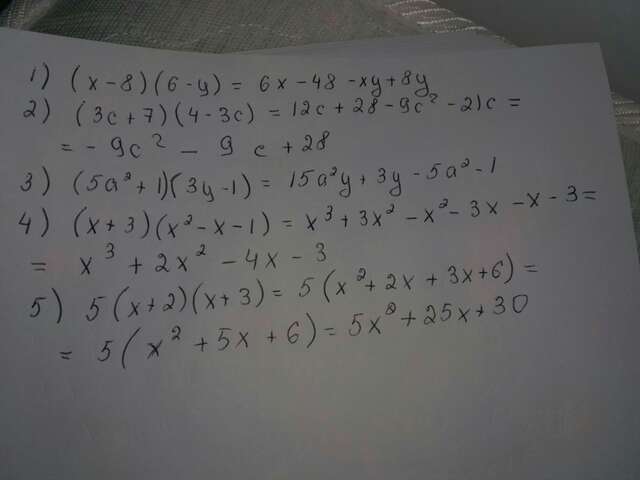 1) (x-8)(6-y) = 6x-48-xy+8y
2) (3c+7)(4-3c) = 12c+28-9c²-21c =
= -9c² - 9c+28
3) (5a²+1)(3y-1) = 15a²y+3y-5a²-1
4) (x+3)(x²-x-1) = x³+3x²-x²-3x-x-3=
= x³+2x²-4x-3
5) 5(x+2)(x+3) = 5(x²+2x+3x+6) =
= 5(x²+5x+6) = 5x²+25x+30